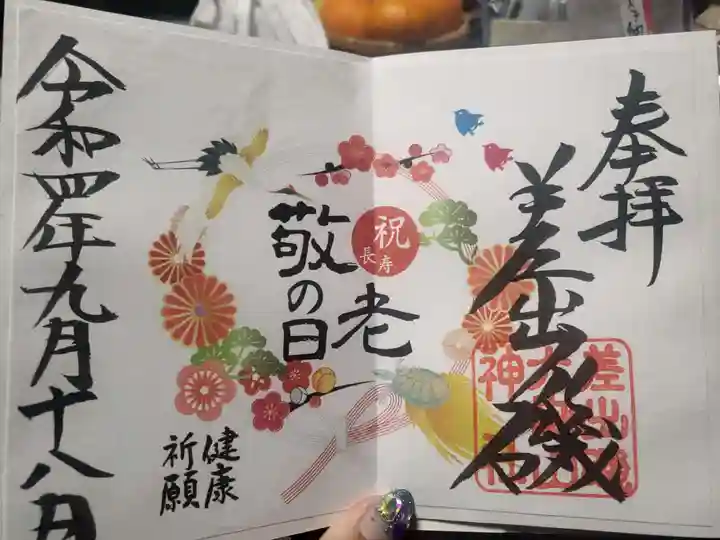 奉拝
差出磯
差出磯
大嶽山
神社
敬老
の日
祝
長寿
健康
祈願
令和四年九月十八日